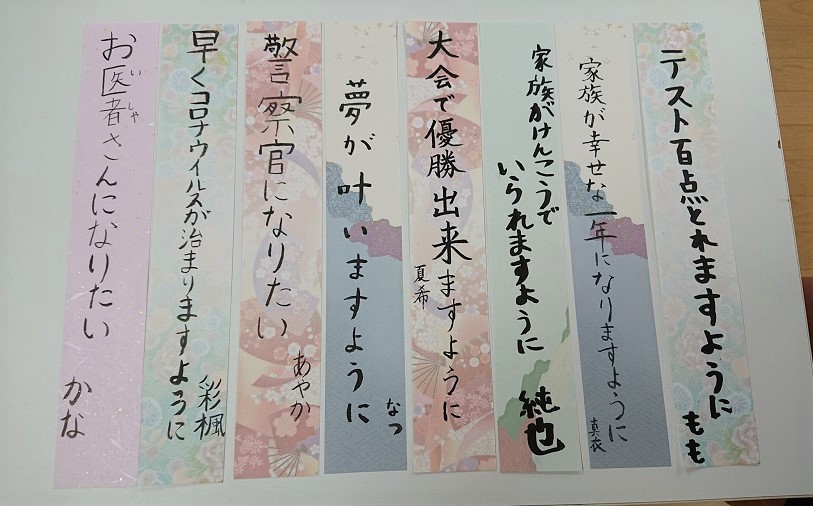 テスト百点とれますように
もも
家族が幸せな一年になりますように
真衣
家族がけんこうで
いられますように
純也
大会で優勝出来ますように
夏希
夢が叶いますように
なつ
警察官になりたい
あやか
早くコロナウイルスが治まりますように
彩楓
お医者さんになりたい
いしゃ
かな